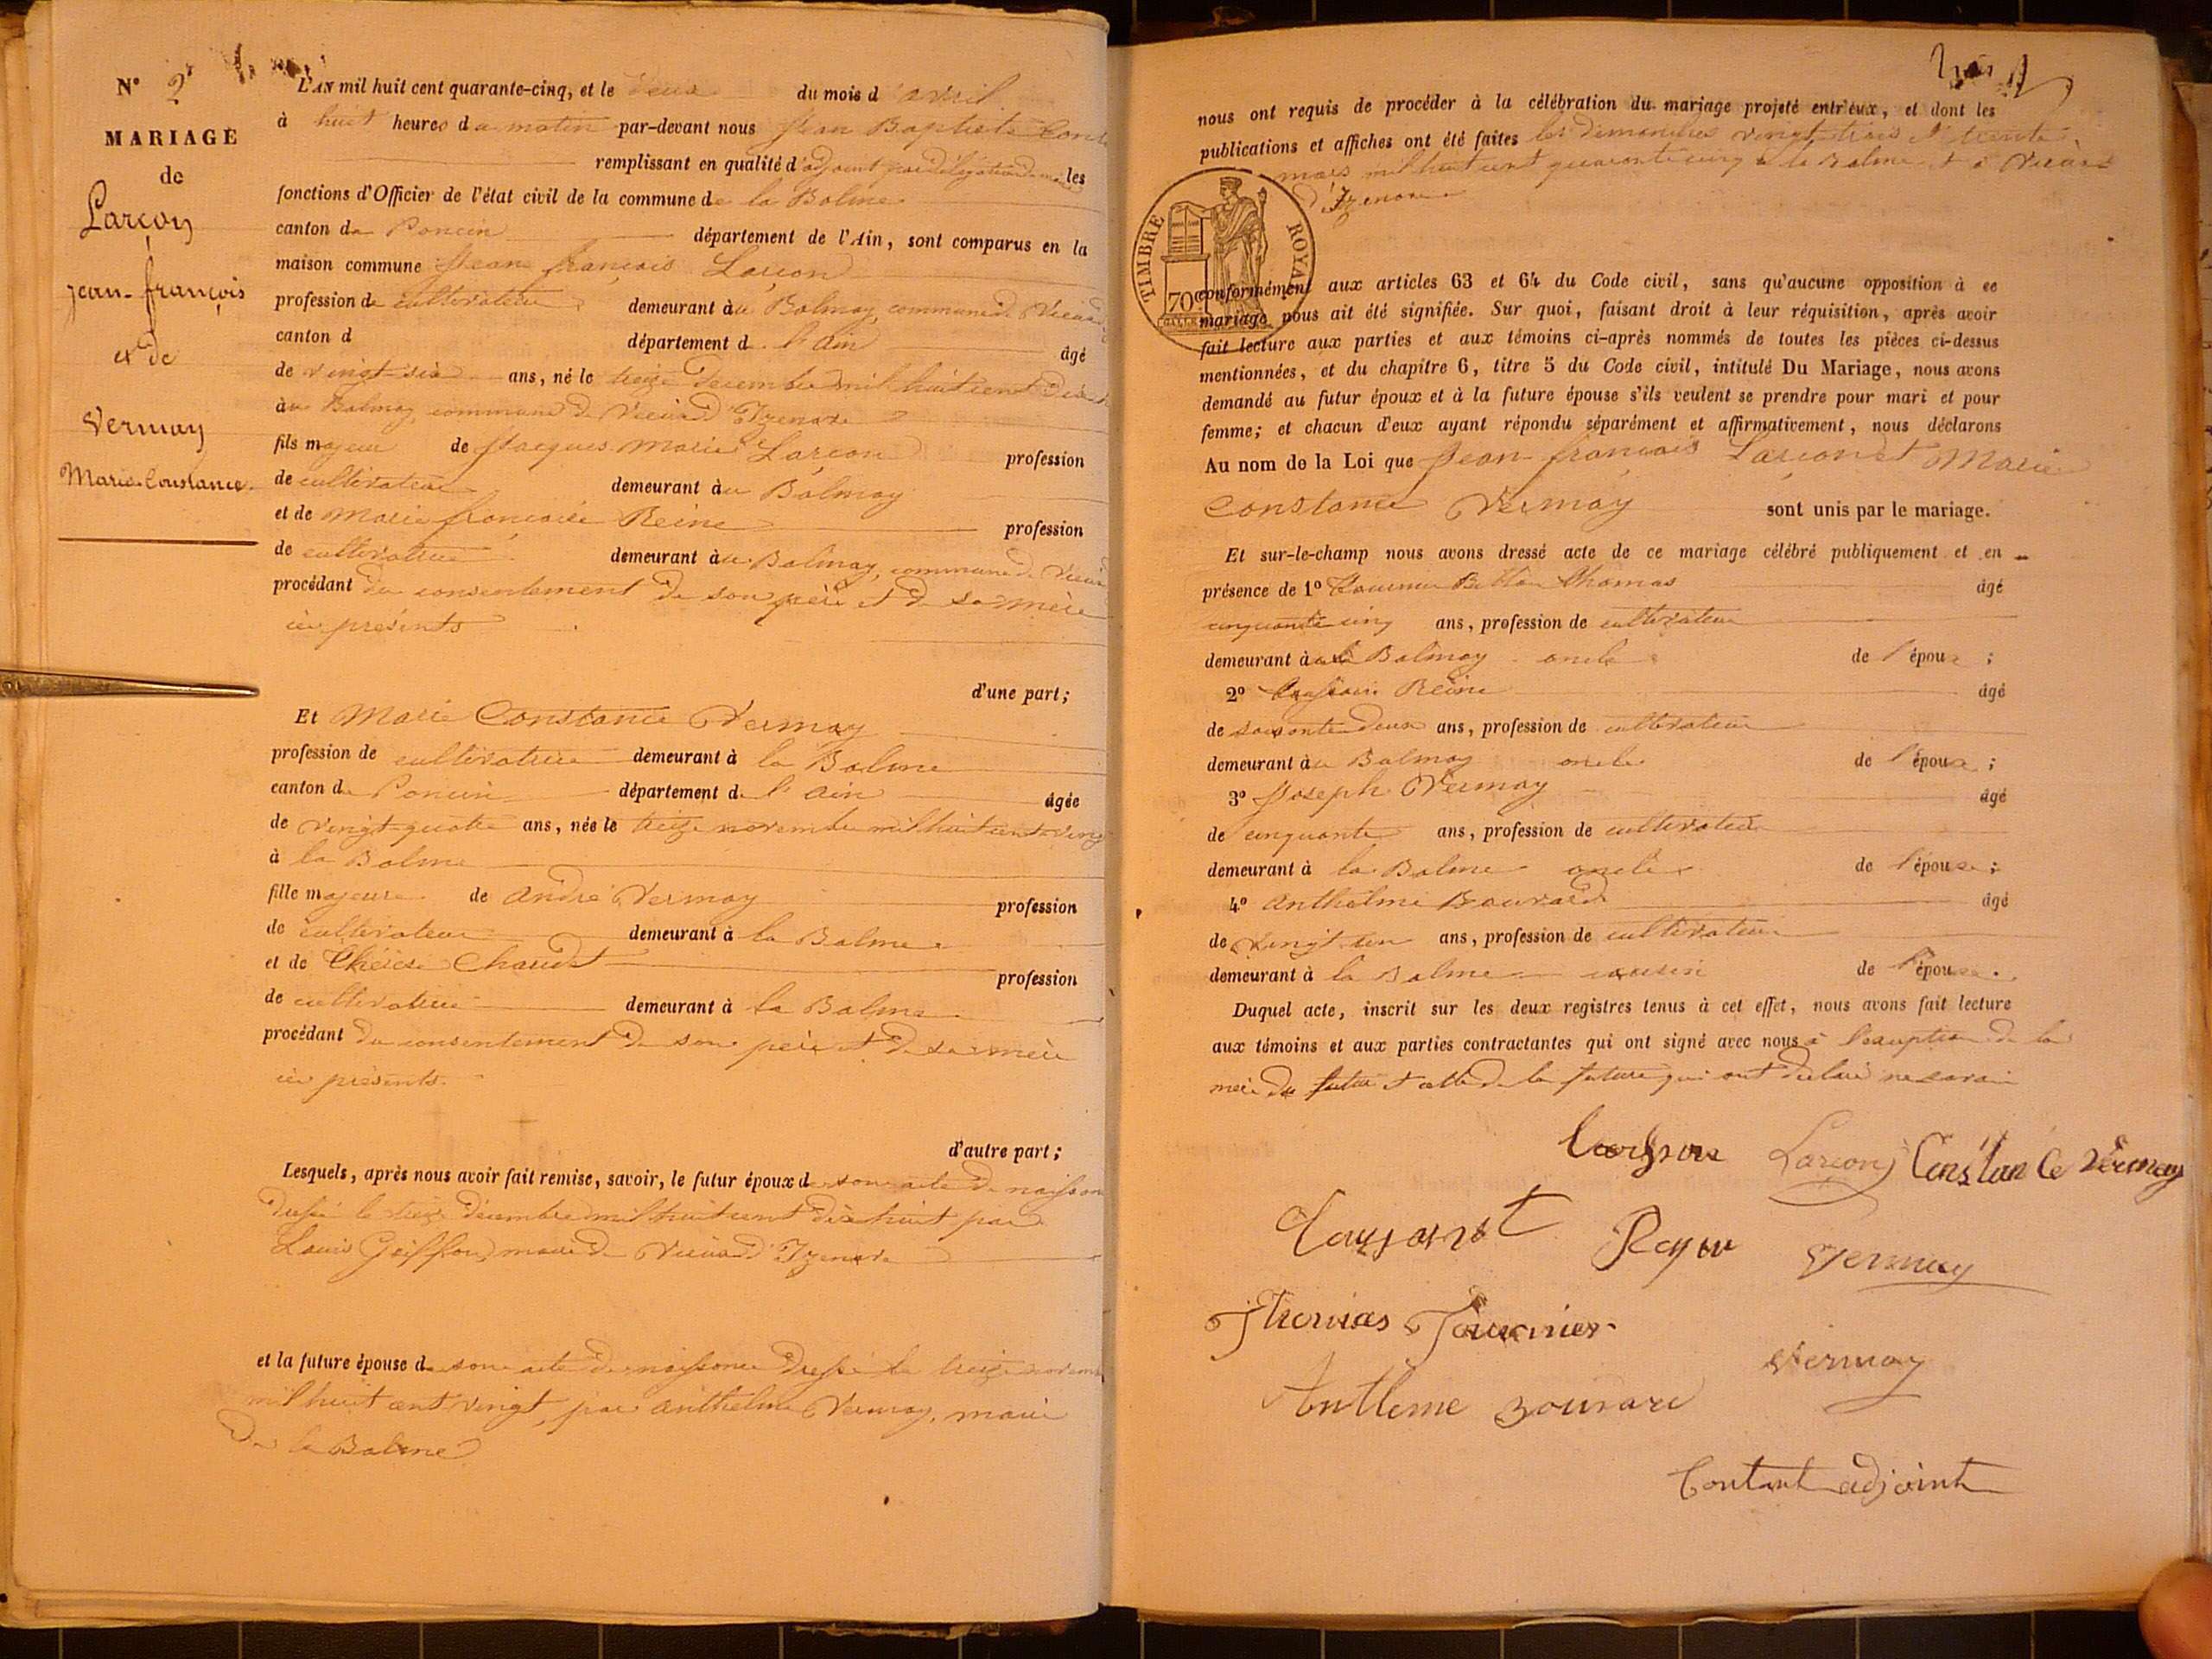 N° 2
MARIAGE
de
Larçon
jean-françois
et de
Vermay
Marie-Constance
L'AN mil huit cent quarante-cinq, et le deux du mois d'avril
à huit heures du matin par-devant nous Jean Baptiste
remplissant en qualité d'adjoint par délégation du maire les
fonctions d'Officier de l'état civil de la commune de la Balme
canton de Poncin département de l'Ain, sont comparus en la
maison commune Jean françois Larçon
profession de cultivateur demeurant au Balmay, commune de Vieu
canton d département de l'ain âgé
de vingt-six ans, né le treize Decembre mil huit cent Dix
au Balmay commune de Vieu d'Izenave
fils majeur de Jacques Marie Larçon profession
de cultivateur demeurant au Balmay
et de Marie françoise Reine profession
de cultivatrice demeurant au Balmay, commune de Vieu
procédant du consentement de son père et de sa mère
ici présents
d'une part;
Et Marie Constance Vermay
profession de cultivatrice demeurant à la Balme
canton de Poncin département de l'Ain âgée
de vingt-quatre ans, née le treize novembre mil huit cent vingt
à la Balme
fille majeure de André Vermay profession
de cultivateur demeurant à la Balme
et de Thérèse Chaudet profession
de cultivatrice demeurant à la Balme
procédant du consentement de son père et de sa mère
ici présents.
d'autre part;
Lesquels, après nous avoir fait remise, savoir, le futur époux de son acte de naissance
dressé le treize décembre mil huit cent dix huit par
Louis maire de Vieu d'Izenave
et la future épouse de son acte de naissance dressé le treize novembre
mil huit cent vingt, par Anthelme Vermay, maire
de la Balme
nous ont requis de procéder à la célébration du mariage projeté entr'eux, et dont les
publications et affiches ont été faites les dimanches vingt-trois et trente
mars mil huit cent quarante cinq à la Balme et à Vieu
d'Izenave
TIMBRE ROYAL
70
conformément aux articles 63 et 64 du Code civil, sans qu'aucune opposition à ce
mariage nous ait été signifiée. Sur quoi, faisant droit à leur réquisition, après avoir
fait lecture aux parties et aux témoins ci-après nommés de toutes les pièces ci-dessus
mentionnées, et du chapitre 6, titre 5 du Code civil, intitulé Du Mariage, nous avons
demandé au futur époux et à la future épouse s'ils veulent se prendre pour mari et pour
femme; et chacun d'eux ayant répondu séparément et affirmativement, nous déclarons
Au nom de la Loi que Jean françois Larçon et Marie
Constance Vermay sont unis par le mariage.
Et sur-le-champ nous avons dressé acte de ce mariage célébré publiquement et en
présence de 1° Thomas âgé
cinquante cinq ans, profession de cultivateur
demeurant au Balmay oncle de l'époux ;
2° Reine âgé
de soixante deux ans, profession de cultivateur
demeurant au Balmay oncle de l'époux ;
3° Joseph Vermay âgé
de cinquante ans, profession de cultivateur
demeurant à la Balme oncle de l'épouse ;
4° Anthelme Bouvard âgé
de vingt un ans, profession de cultivateur
demeurant à la Balme cousin de l'épouse.
Duquel acte, inscrit sur les deux registres tenus à cet effet, nous avons fait lecture
aux témoins et aux parties contractantes qui ont signé avec nous à l'exception de la
mère du futur et celle de la future qui ont déclaré ne savoir
Larçon Constance Vermay
Vermay
Thomas Fournier
Vermay
Antleme Bouvard
Contant adjoint